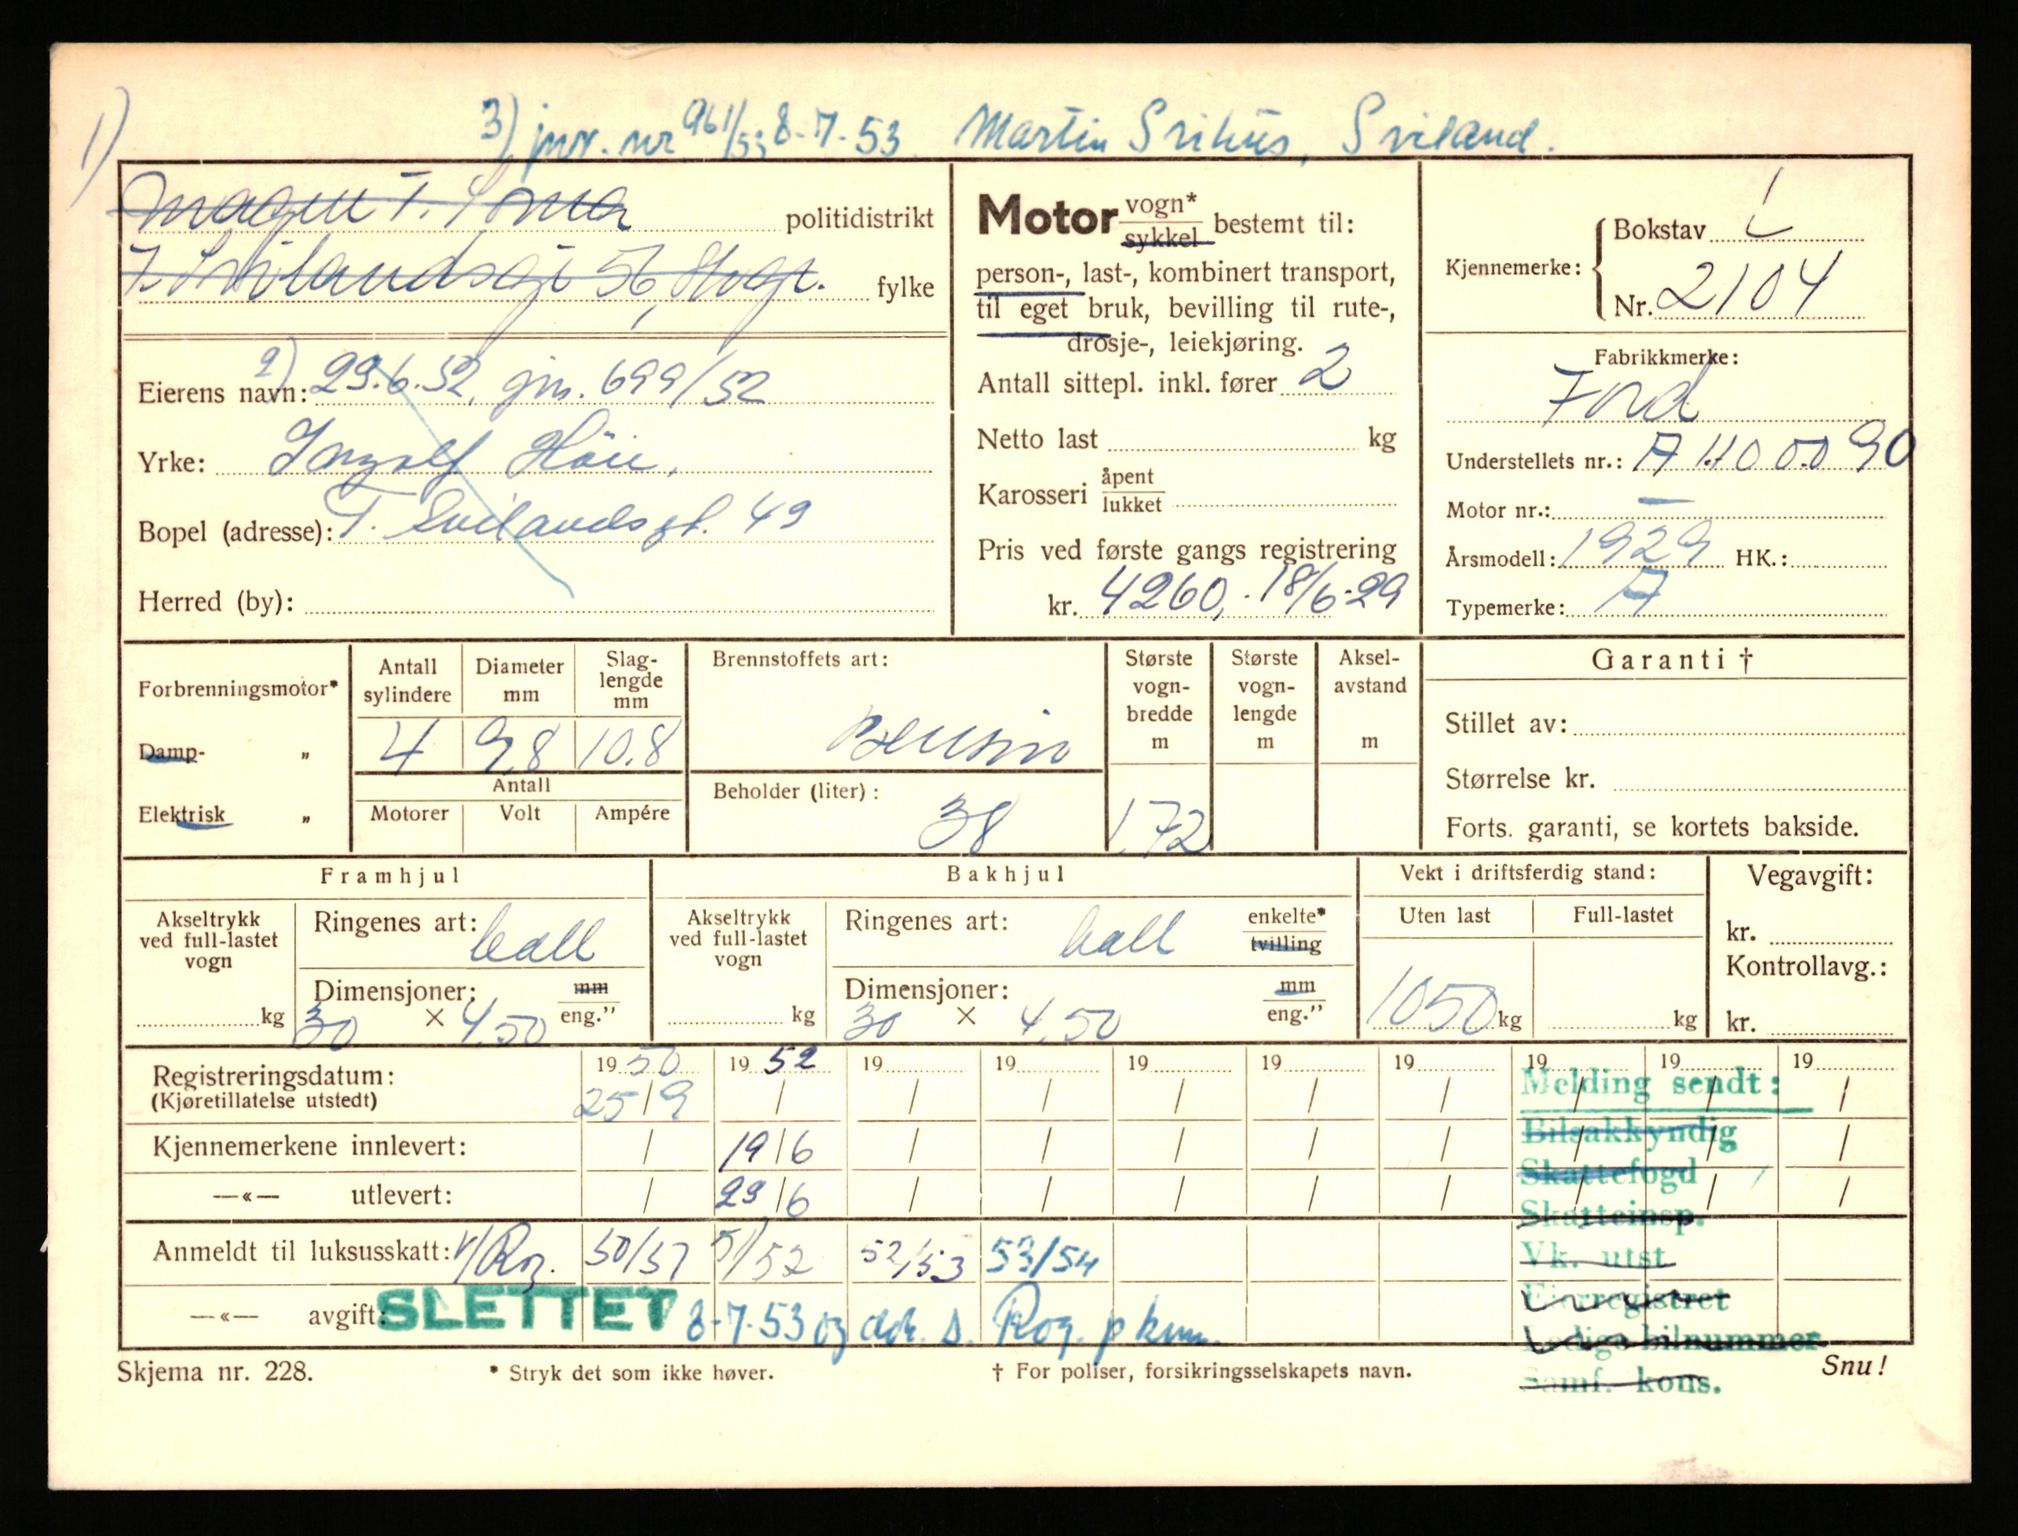 1)
3) jnr. nr 961/53 8-7-53. Martin Svihus, Sviland.
Magne T. Soma politidistrikt
T. Svilandsgt 56, fylke
Eierens navn: 2) 29.6.52. jnr. 699/52
Yrke: Ingolf Höie,
Bopel (adresse): T. Svilandsgt. 49
Herred (by):
Motor vogn* sykkel bestemt til:
person-, last-, kombinert transport,
til eget bruk, bevilling til rute-,
drosje-, leiekjøring.
Antall sittepl. inkl. fører 2
Netto last kg
Karosseri åpent lukket
Pris ved første gangs registrering
kr. 4260,- 18/6-29
Kjennemerke: Bokstav L
Nr. 2104
Fabrikkmerke:
Ford
Understellets nr.: A 1400090
Motor nr.: —
Årsmodell: 1929 HK.:
Typemerke: A
Forbrenningsmotor*
Damp- „
Elektrisk „
Antall sylindere Diameter mm Slag-lengde mm
4 9,8 10.8
Antall
Motorer Volt Ampére
Brennstoffets art:
Bensin
Beholder (liter): 38
Største vogn-bredde m
1,72
Største vogn-lengde m
Aksel-avstand m
Garanti †
Stillet av:
Størrelse kr.
Forts. garanti, se kortets bakside.
Framhjul
Akseltrykk ved full-lastet vogn kg
Ringenes art: ball
Dimensjoner: mm eng.”
30 × 4,50
Bakhjul
Akseltrykk ved full-lastet vogn kg
Ringenes art: ball enkelte* tvilling
Dimensjoner: mm eng.”
30 × 4,50
Vekt i driftsferdig stand:
Uten last Full-lastet
1050 kg kg
Vegavgift:
kr.
Kontrollavg.:
kr.
Registreringsdatum: 19 50 19 52 19 19 19 19 19 19 19 19
(Kjøretillatelse utstedt) 25/9 / / / / / / / / /
Kjennemerkene innlevert: / 19/6 / / / / / / / /
—«— utlevert: / 29/6 / / / / / / / /
Anmeldt til luksusskatt: 50/51 51/52 52/53 53/54
—«— avgift: SLETTET 8-7-53 og
Melding sendt:
Bilsakkyndig
Skattefogd
Skatteinsp.
Vk. utst.
Eierregistret
Ledige bilnummer
Samf. kons.
Skjema nr. 228. * Stryk det som ikke høver. † For poliser, forsikringsselskapets navn. Snu!